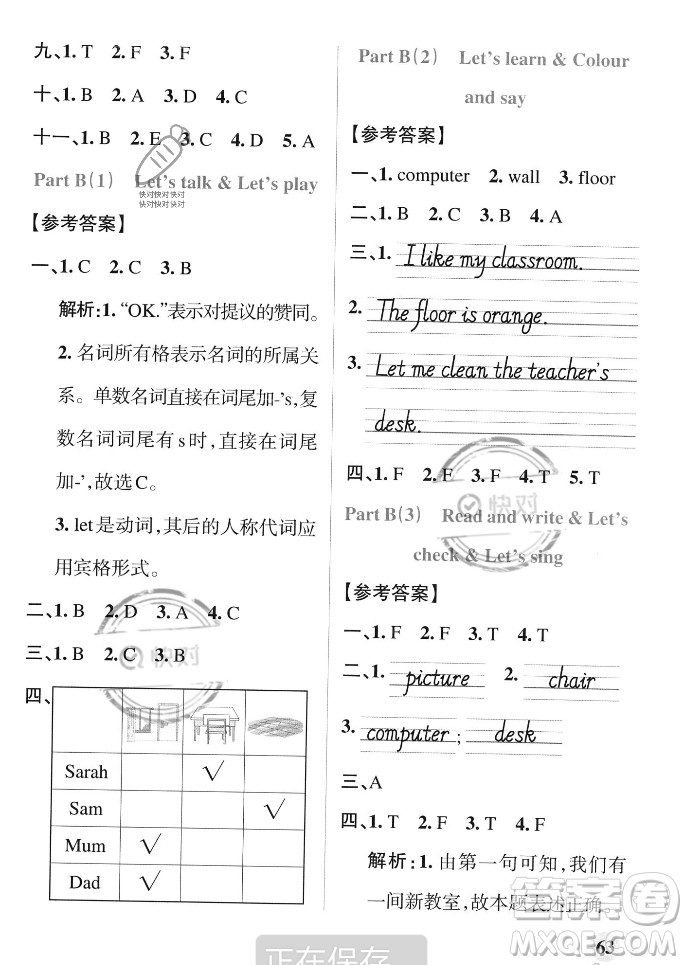 九、1. T 2. F 3. F 4. T
十、1. B 2. A 3. D 4. C
十一、1. B 2. E 3. C 4. D 5. A
Part B(1) Let's talk & Let's play
快对快对快对
快对快对快对
【参考答案】
一、1. C 2. C 3. B
解析:1. “OK.”表示对提议的赞同。
2. 名词所有格表示名词的所属关
系。单数名词直接在词尾加-'s,复
数名词词尾有s时,直接在词尾
加-',故选C。
3. let是动词,其后的人称代词应
用宾格形式。
二、1. B 2. D 3. A 4. C
三、1. B 2. C 3. B
快对
四、
Sarah √
Sam √
Mum √
Dad √
Part B(2) Let's learn & Colour
and say
【参考答案】
一、1. computer 2. wall 3. floor
二、1. B 2. C 3. A 4. C
三、1. I like my classroom.
2. The floor is orange.
3. Let me clean the teacher's
desk.
四、1. F 2. F 3. F 4. T 5. T
快对
Part B(3) Read and write & Let's
check & Let's sing
【参考答案】
一、1. F 2. F 3. T 4. T
二、1. picture 2. chair
3. computer ; desk
三、A
四、1. T 2. F 3. T 4. F
解析:1. 由第一句可知,我们有
一间新教室,故本题表述正确。
答案圈
63
正在保存